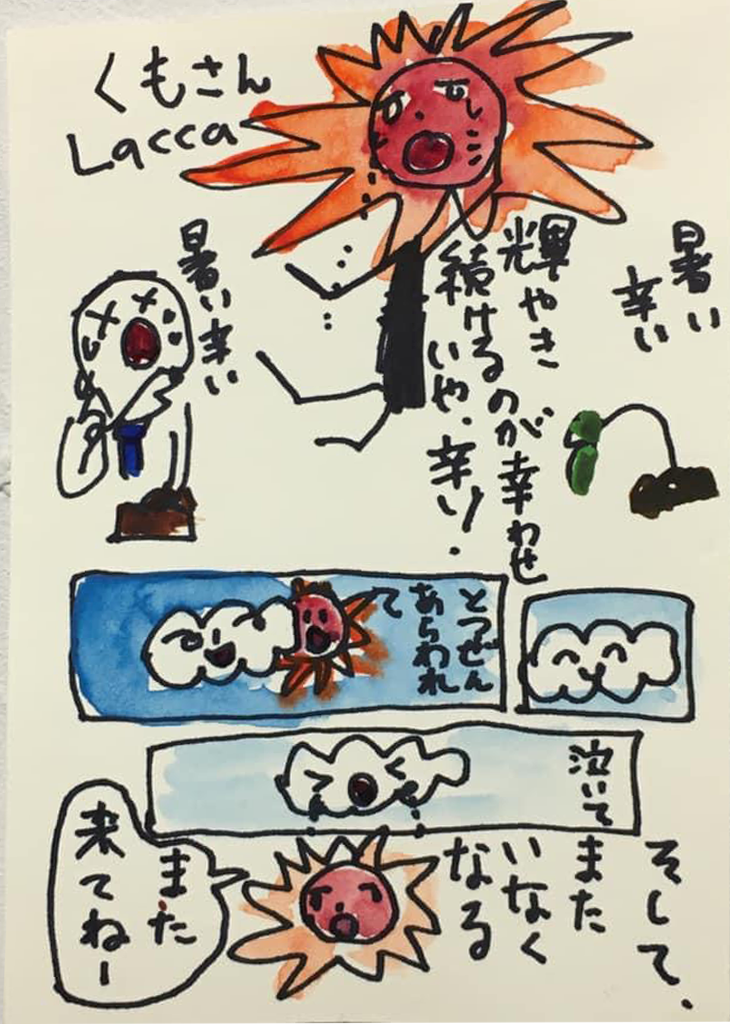 くもさん
Lacca
暑い
辛い
輝やき
続けるのが幸わせ
いや、辛い.
暑い辛い
とつぜん
あらわれ
て
泣いて
そして、
また
いなく
なる
また
来てねー